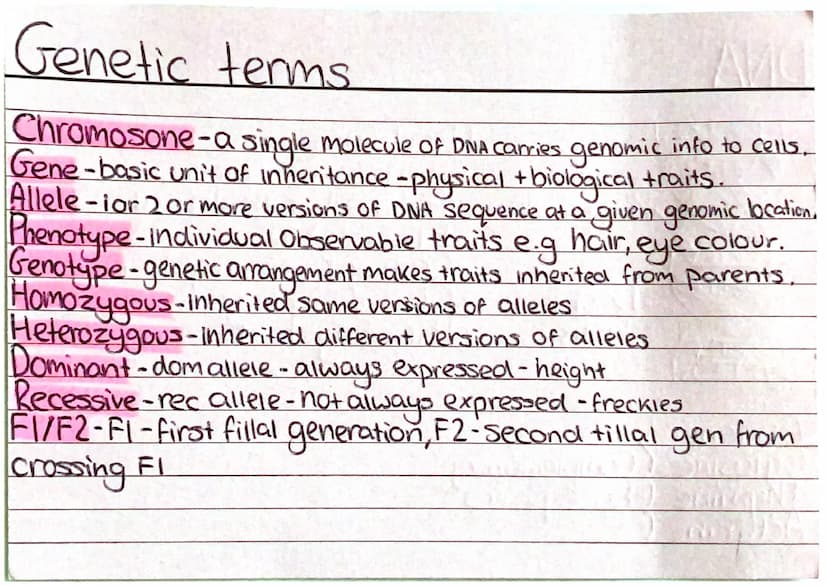 Genetic terms
Chromosone - a single molecule of DNA carries genomic info to cells.
Gene - basic unit of inheritance - physical + biological traits.
Allele - 1 or 2 or more versions of DNA sequence at a given genomic location.
Phenotype - individual observable traits e.g hair, eye colour.
Genotype - genetic arrangement makes traits inherited from parents.
Homozygous - inherited same versions of alleles
Heterozygous - inherited different versions of alleles
Dominant - dom allele - always expressed - height
Recessive - rec allele - not always expressed - freckles
F1/F2 - F1 - first fillal generation, F2 - second tillal gen from
crossing F1